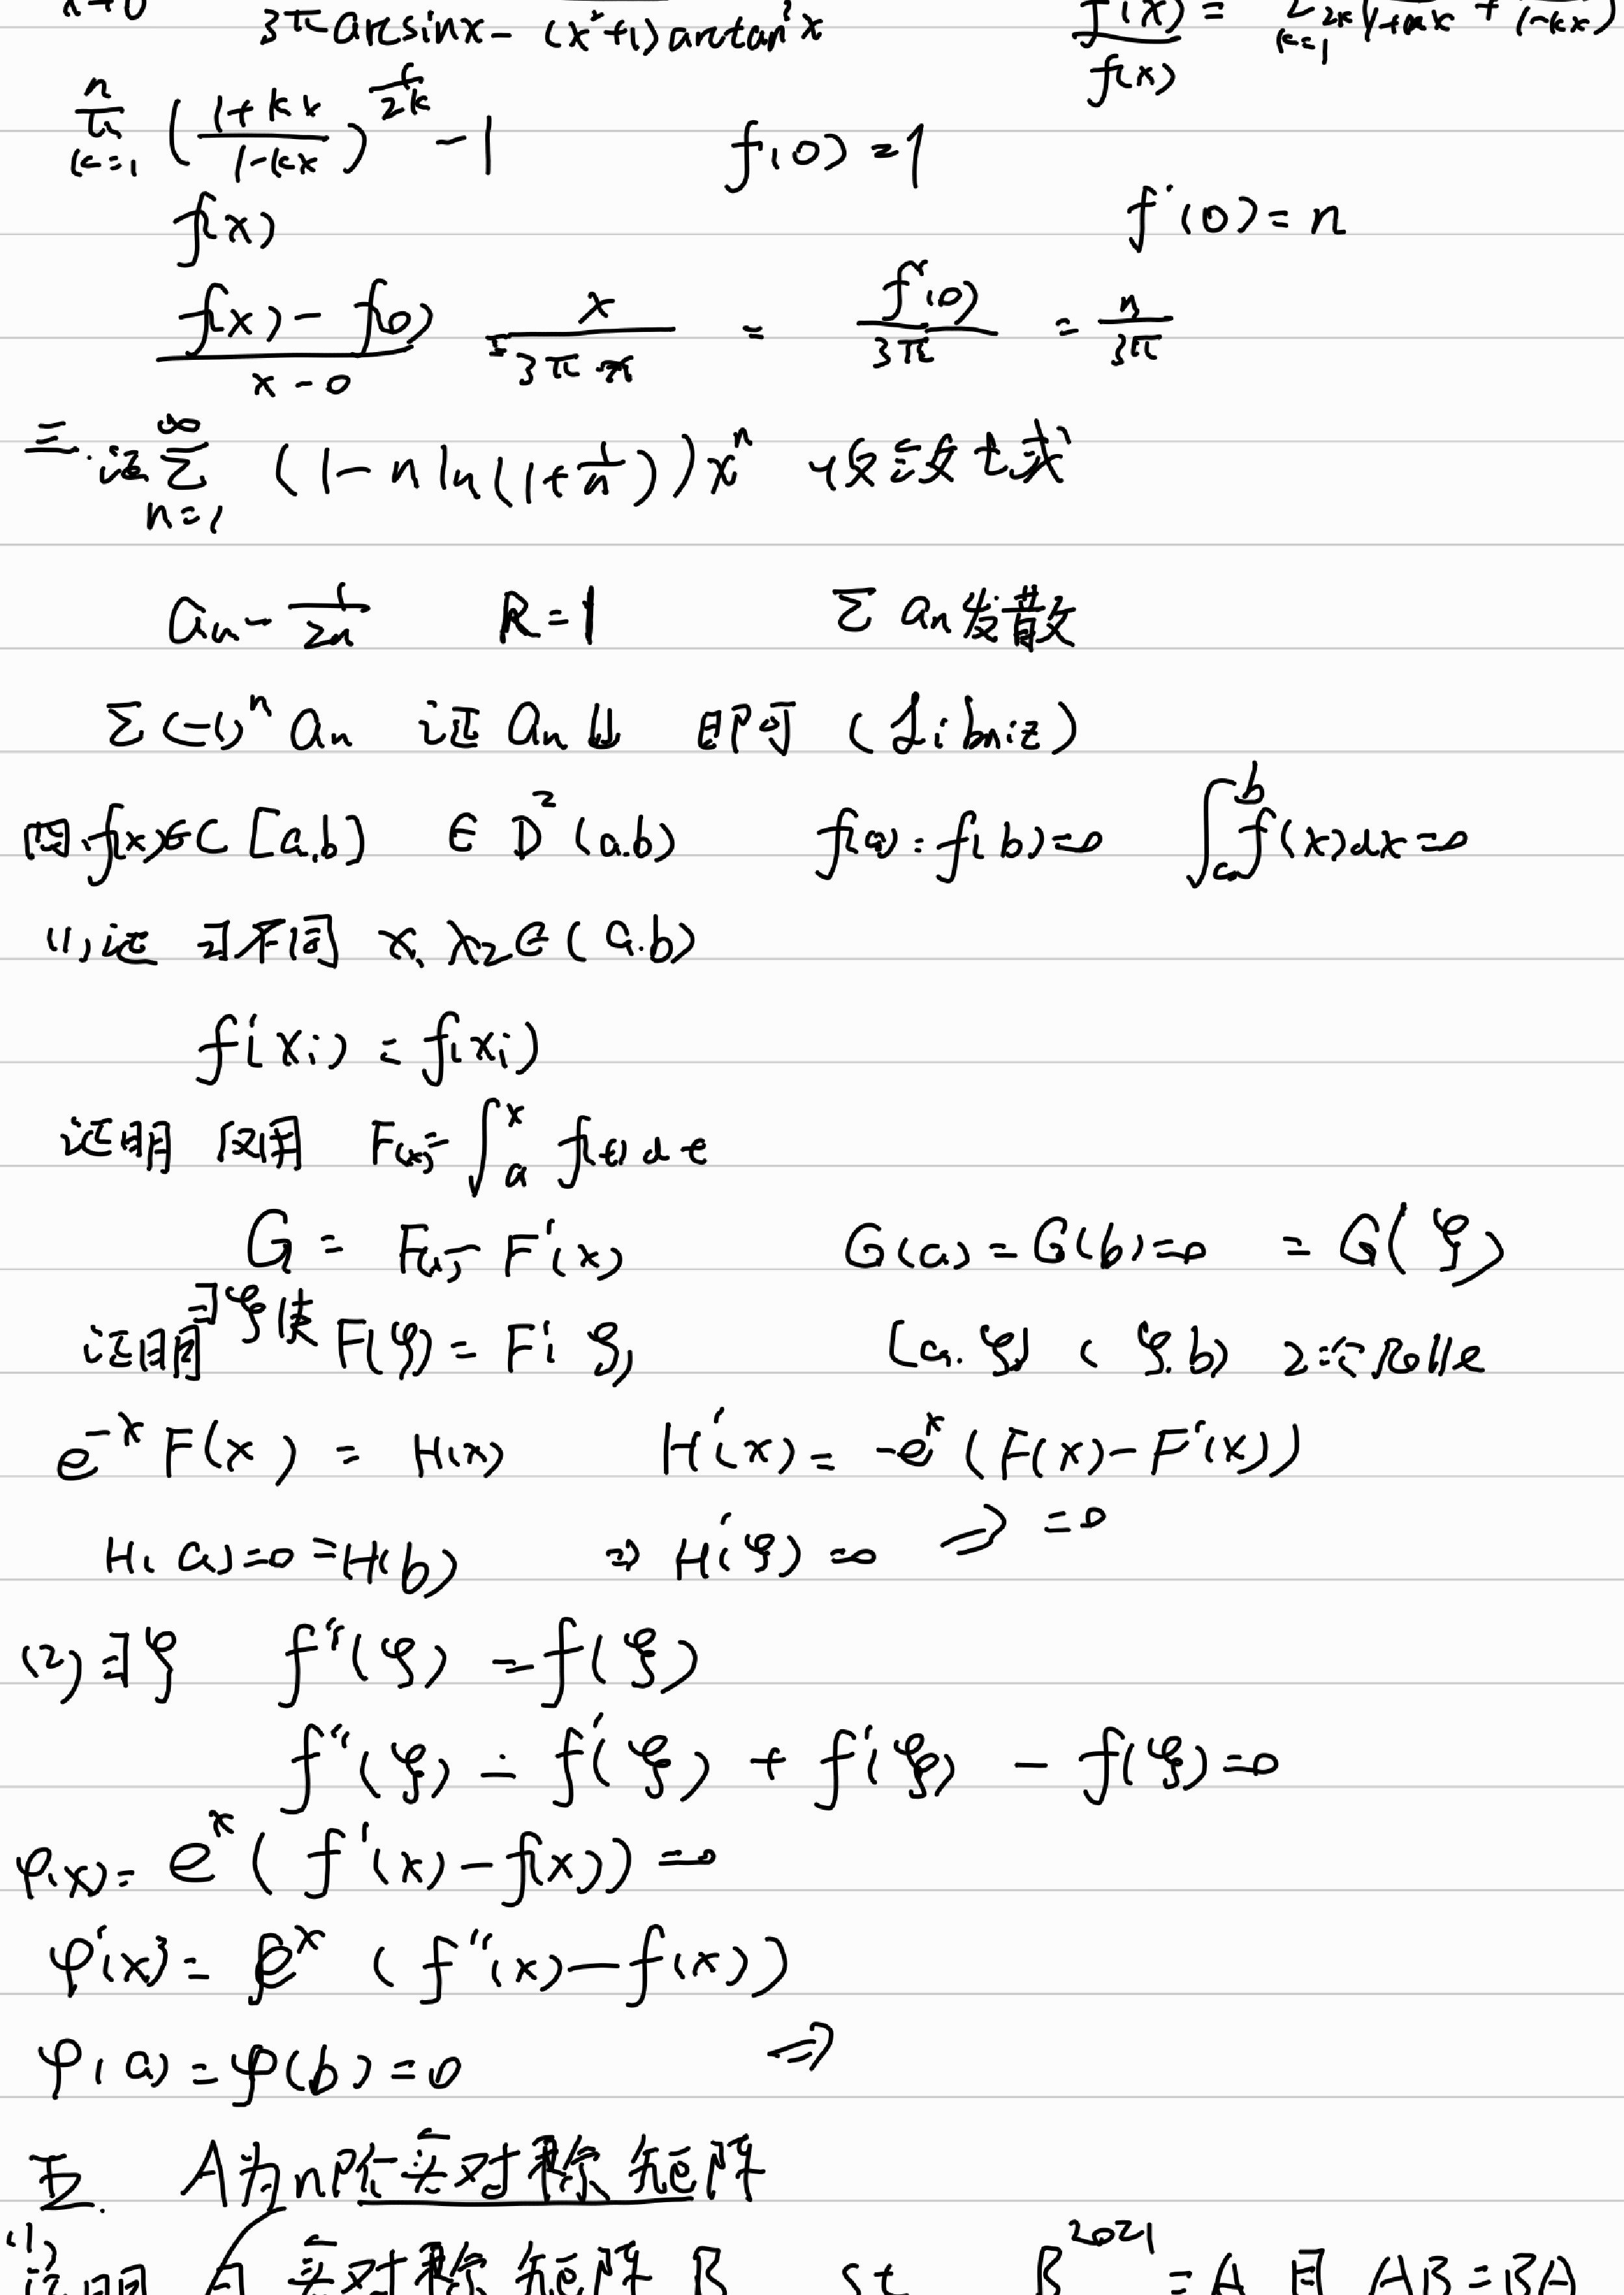 x→0 3π arcsin x − (x²+1) arctan³x f'(x)
f(x) = Σ k=1 1/2k (k/1+kx + k/1-kx)
n π k=1 (1+kx / 1-kx)^(1/2k) −1 f(0)=1
f(x) f'(0)=n
f(x)−f(0) / x−0 · x / 3π·x = f'(0) / 3π = n / 3π
三. 证 ∞ Σ n=1 (1−n ln(1+1/n))x^n 收敛域
an ~ 1/2n R=1 Σ an 发散
Σ(−1)^n an 证 an ↓ 即可 (Libniz)
四. f(x)∈C[a,b] ∈D²(a.b) f(a)=f(b)=0 ∫_a^b f(x)dx=0
(1) 证 ∃不同 x₁ x₂∈(a.b)
f'(xi) = f(xi)
证明 设 F(x)=∫_a^x f(t)dt
G = F(x)−F'(x) G(a)=G(b)=0 =G(ξ)
证明 ∃ξ使 F(ξ)=F'(ξ) [a.ξ] (ξ.b) 2次Rolle
e^−x F(x) = H(x) H'(x) = −e^x (F(x)−F'(x))
H(a)=0=H(b) ⇒ H'(ξ)=0 ⇒ =0
(2) ∃ξ f''(ξ) = f(ξ)
f''(ξ) − f'(ξ) + f'(ξ) − f(ξ)=0
φ(x)= e^x (f'(x)−f(x))=0
φ'(x)= e^x (f''(x)−f(x))
φ(a)=φ(b)=0 ⇒
五. A为n阶实对称矩阵
(1) 证明 ∃ 实对称矩阵 B st B^2021 =A 且 AB=BA